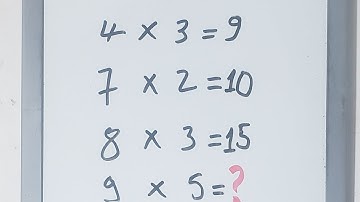 4 × 3 = 9
7 × 2 = 10
8 × 3 = 15
9 × 5 = ?